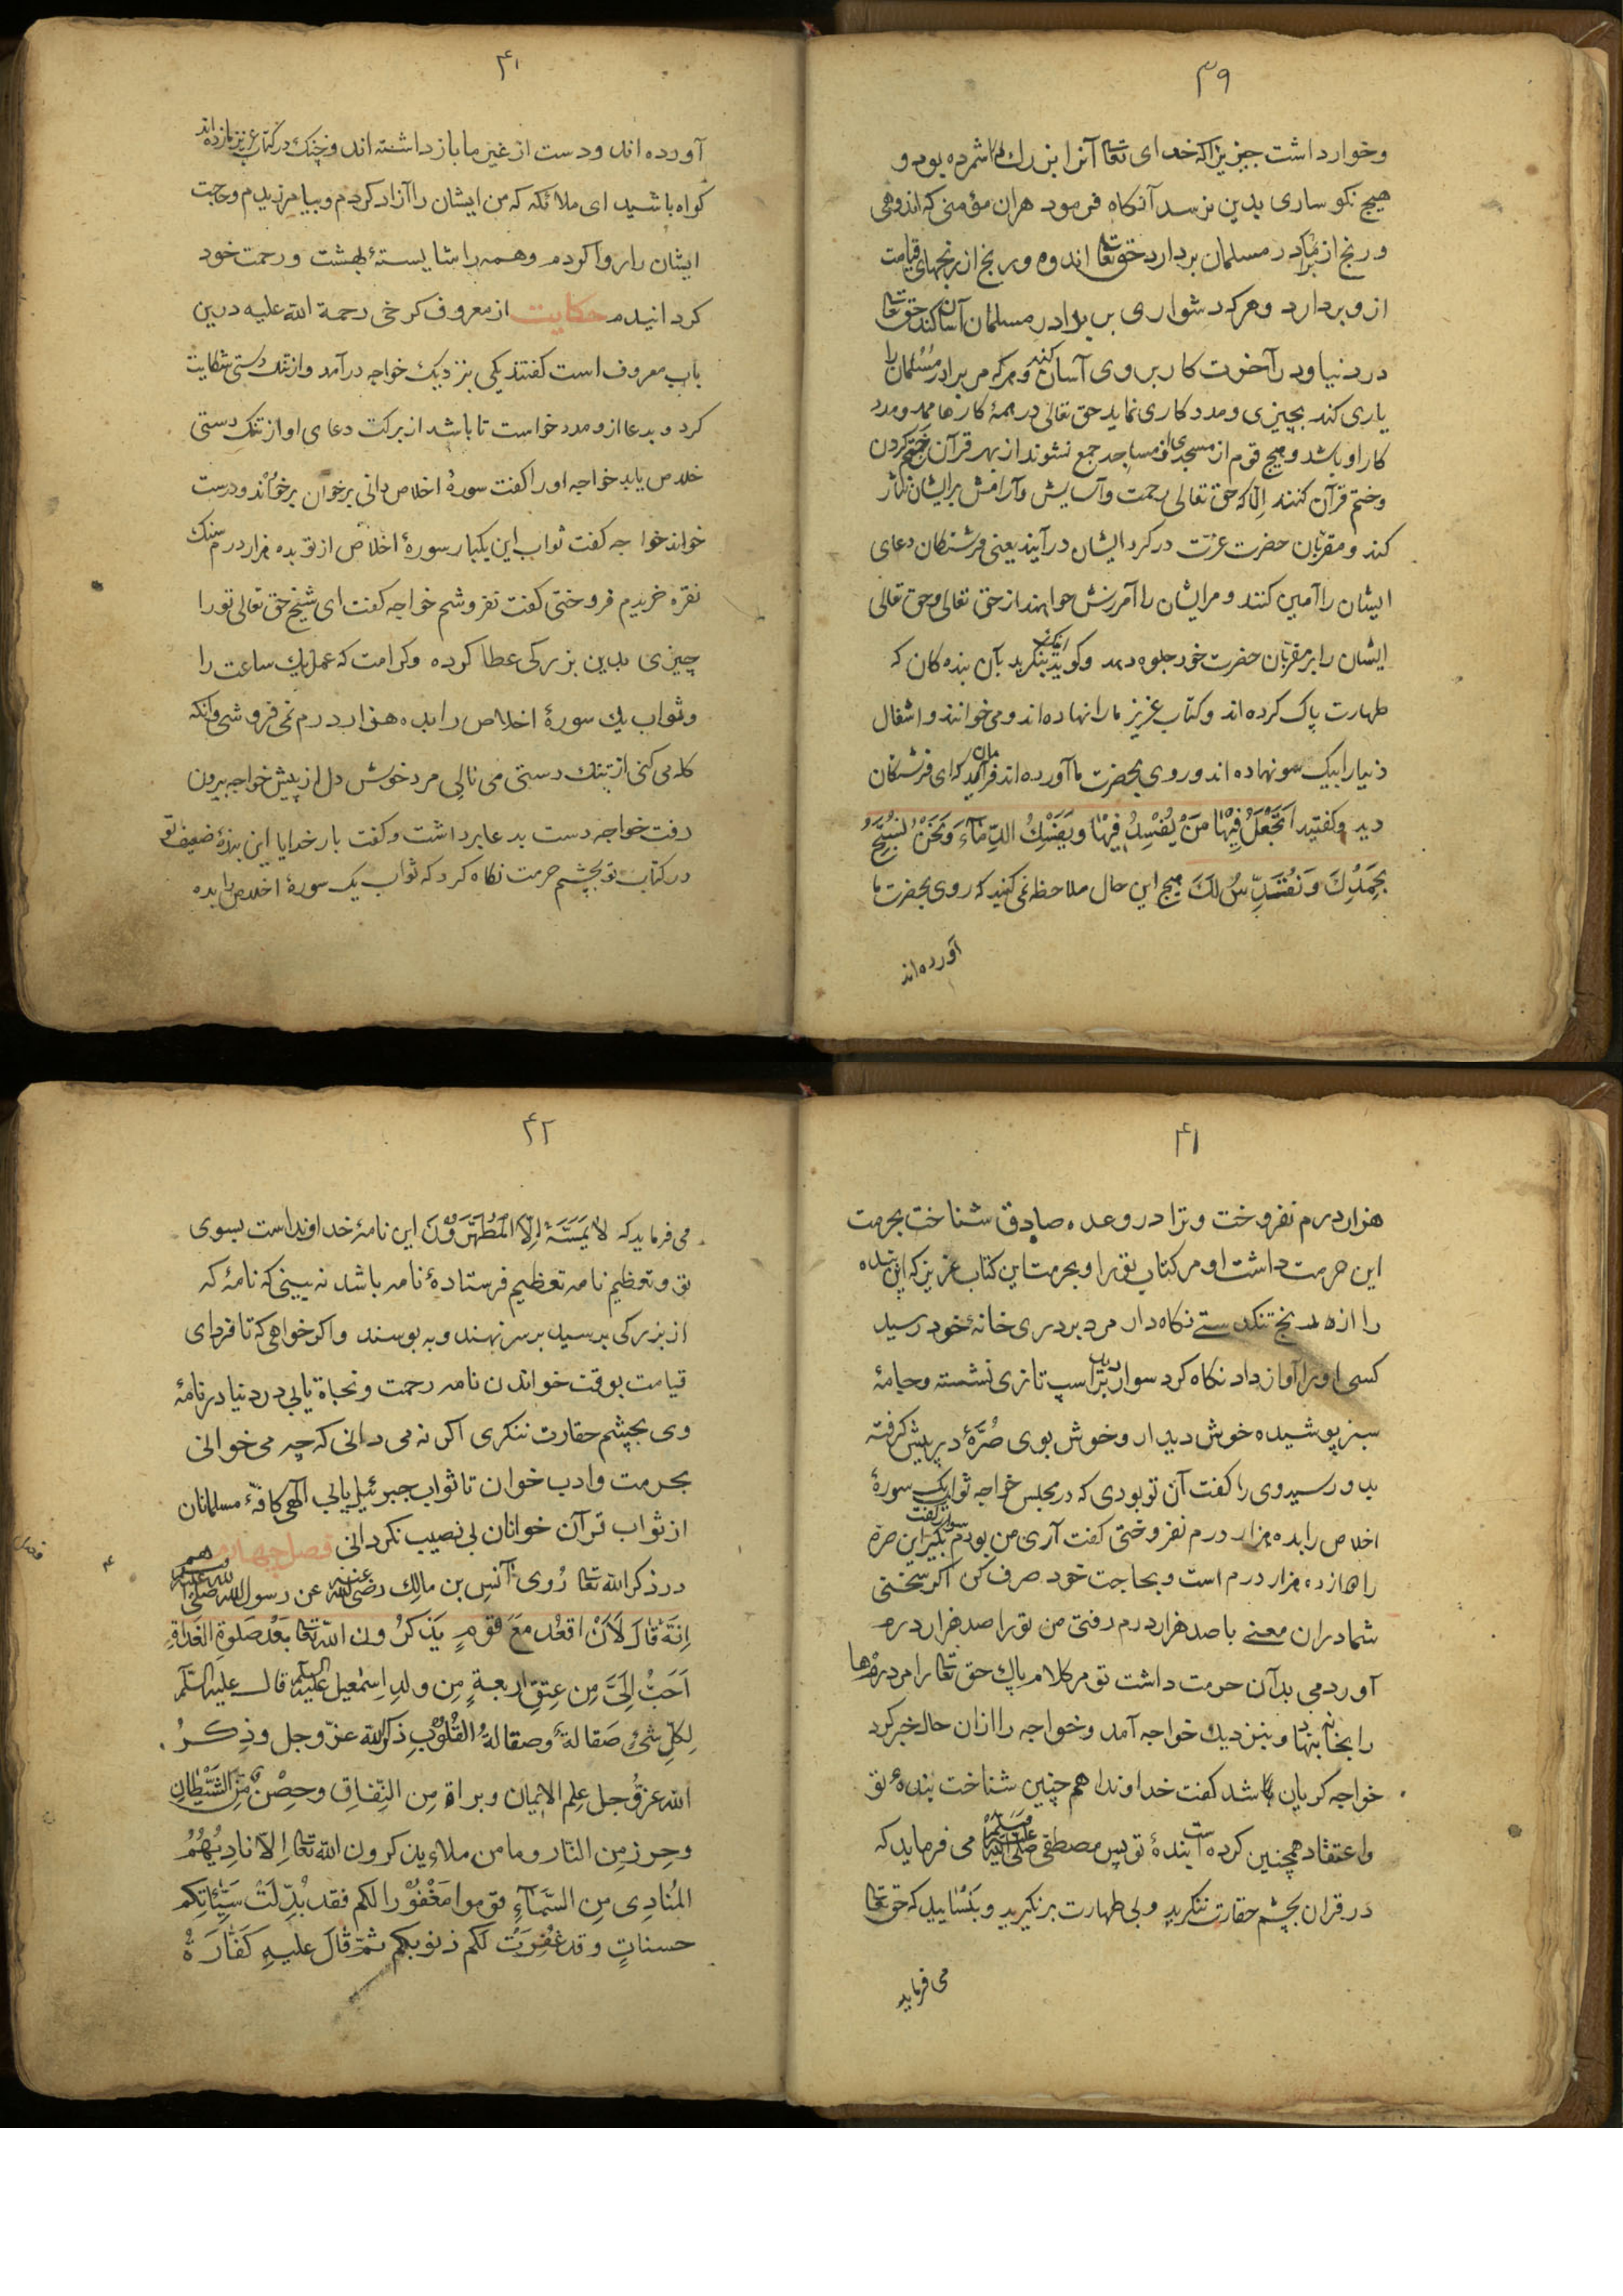 ۳۹
وخوارداشت چیزیراکه خدای تعا آنرا بزرك شمرده بود و
هیچ نکوساری بدین نرسد آنکاه فرمود هران مؤمنی که اندوهی
ورنج از برادر مسلمان بردارد حق تعا اندوه ورنج از رنجهای قیامت
ازو بردارد وهرکه دشواری بر برادر مسلمان آسان کند حق تعا
در دنیا ودر آخرت کار بروی آسان کند وهرکه مر برادر مسلمان را
یاری کند بچیزی ومددکاری نماید حق تعالی در همهٔ کارها ممد ومدد
کار او باشد وهیچ قوم از مسجدی از مساجد جمع نشوند از بهر قرآن ختم کردن
وختم قرآن کنند اِلّا که حق تعالی رحمت وآسایش وآرامش برایشان نثار
کند ومقرّبان حضرت عزّت درکرد ایشان درآیند یعنی فرشتکان دعای
ایشان را آمین کنند ومرایشان را آمرزش خواهند از حق تعالی وحق تعالی
ایشان را بر مقربّان حضرت خود جلوه دهد وکوید بنکرید بآن بنده کان که
طهارت پاک کرده اند وکتاب عزیز ما را نهاده اند ومی خوانند واشغال
دنیا را بیک سو نهاده اند وروی بحضرت ما آورده اند فرمان آید که ای فرشتکان
دید وکفتید اَتَجْعَلُ فِیْهَا مَنْ یُفْسِدُ فِیْهَا وَیَسْفِكُ الدِّمَآءَ وَنَحْنُ نُسَبِّحُ
بِحَمْدِكَ وَنُقَدِّسُ لَكَ هیچ این حال ملاحظه نمی کنید که روی بحضرت ما
آورده اند
۴۰
آورده اند ودست از غیر ما بازداشته اند وچنك در کتاب عزیز ما زده اند
کواه باشید ای ملائکه که من ایشان را آزاد کردم وبیامرزیدم وحاجت
ایشان را روا کردم وهمه را شایستهٔ بهشت ورحمت خود
کردانیدم حکایت از معروف کرخی رحمة الله علیه درین
باب معروف است کفتند یکی بنزدیک خواجه درآمد واز تنك دستی شکایت
کرد وبدعا ازو مدد خواست تا باشد از برکت دعای او از تنك دستی
خلاص یابد خواجه او را کفت سورهٔ اخلاص دانی برخوان برخواند ودرست
خواند خواجه کفت ثواب این یکبار سورهٔ اخلاص از تو بده هزار درم سنك
نقره خریدم فروختی کفت نفروشم خواجه کفت ای شیخ حق تعالی تو را
چیزی بدین بزرکی عطا کرده وکرامت که عمل یك ساعت را
وثواب یك سورهٔ اخلاص را بده هزار درم نمی فروشی وآنکه
کله می کنی از تنك دستی می نالی مرد خوش دل از پیش خواجه بیرون
رفت خواجه دست بدعا برداشت وکفت بار خدایا این بندهٔ ضعیف تو
در کتاب تو بچشم حرمت نکاه کرد که ثواب یک سورهٔ اخلاص را بده
۴۱
هزار درم نفروخت وترا در وعده صادق شناخت بحرمت
این حرمت داشت او مر کتاب تو را وبحرمت این کتاب عزیز که این بنده
را ازه رنج تنکدستے نکاه دار مرد بردری خانهٔ خود رسید
کسی او را آواز داد نکاه کرد سواری بر اسپ تازی نشسته وجامهٔ
سبز پوشیده خوش دیدار وخوش بوی صُرَّهٔ در پیش کرفته
بدو رسید وی را کفت آن تو بودی که در مجلس خواجه ثواب یک سورهٔ
اخلاص را بده هزار درم نفروختی کفت آری من بودم سوار کفت بکیر این صرّه
را ها زده هزار درم است وبحاجت خود صرف کن اکر سختی
شما دران معنے با صد هزار درم رفتی من تو را صد هزار درم
آوردمی بدآن حرمت داشت تو مر کلام پاك حق تعا را مرد درمها
را بخانه بنهاد وبنزدیك خواجه آمد وخواجه را ازان حال خبر کرد
خواجه کریان شد کفت خداوندا هم چنین شناخت بندهٔ تو
واعتقاد همچنین کرده است بندهٔ تو پس مصطفی صلی الله علیه وسلم می فرماید که
در قران بچشم حقارت ننکرید وبی طهارت برنکیرید وبنساییدکه حق تعا
می فرماید
۴۲
می فرماید که لَا یَمَسُّهُ اِلَّا الْمُطَهَّرُوْنَ این نامهٔ خداونداست بسوی
تو وتعظیم نامه تعظیم فرستادهٔ نامه باشد نه بینی که نامهٔ که
از بزرکی برسید برسر نهند وبه بوسند واکر خواهی که تا فردای
قیامت بوقت خواندن نامه رحمت ونجاة یابی در دنیا در نامهٔ
وی بچشم حقارت ننکری اکر نه می دانی که چه می خوانی
بحرمت وادب خوان تا ثواب جبرئیل یابی الٓهی کافهٔ مسلمانان
از ثواب قرآن خوانان بی نصیب نکردانی فصل چهارم
در ذکر الله تعا رُوی اَنَسِ بن مالِك رضی الله عنه عن رسول الله صلی الله علیه وسلم
اِنَّهٗ قَالَ لَاَنْ اقعُد مَعَ قَومٍ یَذکرُون الله تَعا بَعْدَ صَلوة الغَداةِ
اَحَبُّ اِلَیَّ مِن عِتقِ اربعةٍ مِن ولدِ اِسْمٰعیل علیه السلم قال علیه السلم
لِکلِّ شئ صَقالةٌ وصقالةُ القُلُوْبِ ذکر الله عزّ وجل وذِکرُ
الله عزّ وجل عِلم الایمان وبراة مِن النِفاقِ وحِصْنٌ مِنَّ الشَّیْطانِ
وحِرز مِن النّار وما من ملاء یذکرون الله تعا اِلاّ نادِیهُمُ
المُنادِی مِن السَّمَآءِ قوموا مَغْفُوْرا لکم فقد بُدِّلَتْ سَیِّئاتِکم
حسناتٍ وقد غُفِرَتْ لَکم ذنوبکم ثمّ قالَ علیهِ کَفّارَةُ
فصل
۴